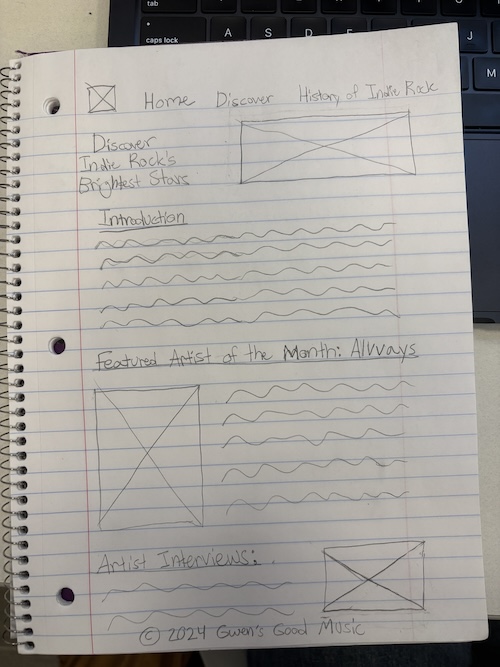 tab
caps lock
A
S
D
J
Home Discover History of Indie Rock
Discover
Indie Rock's
Brightest Stars
Introduction
Featured Artist of the Month: Alvvays
Artist Interviews:
© 2024 Gwen's Good Music